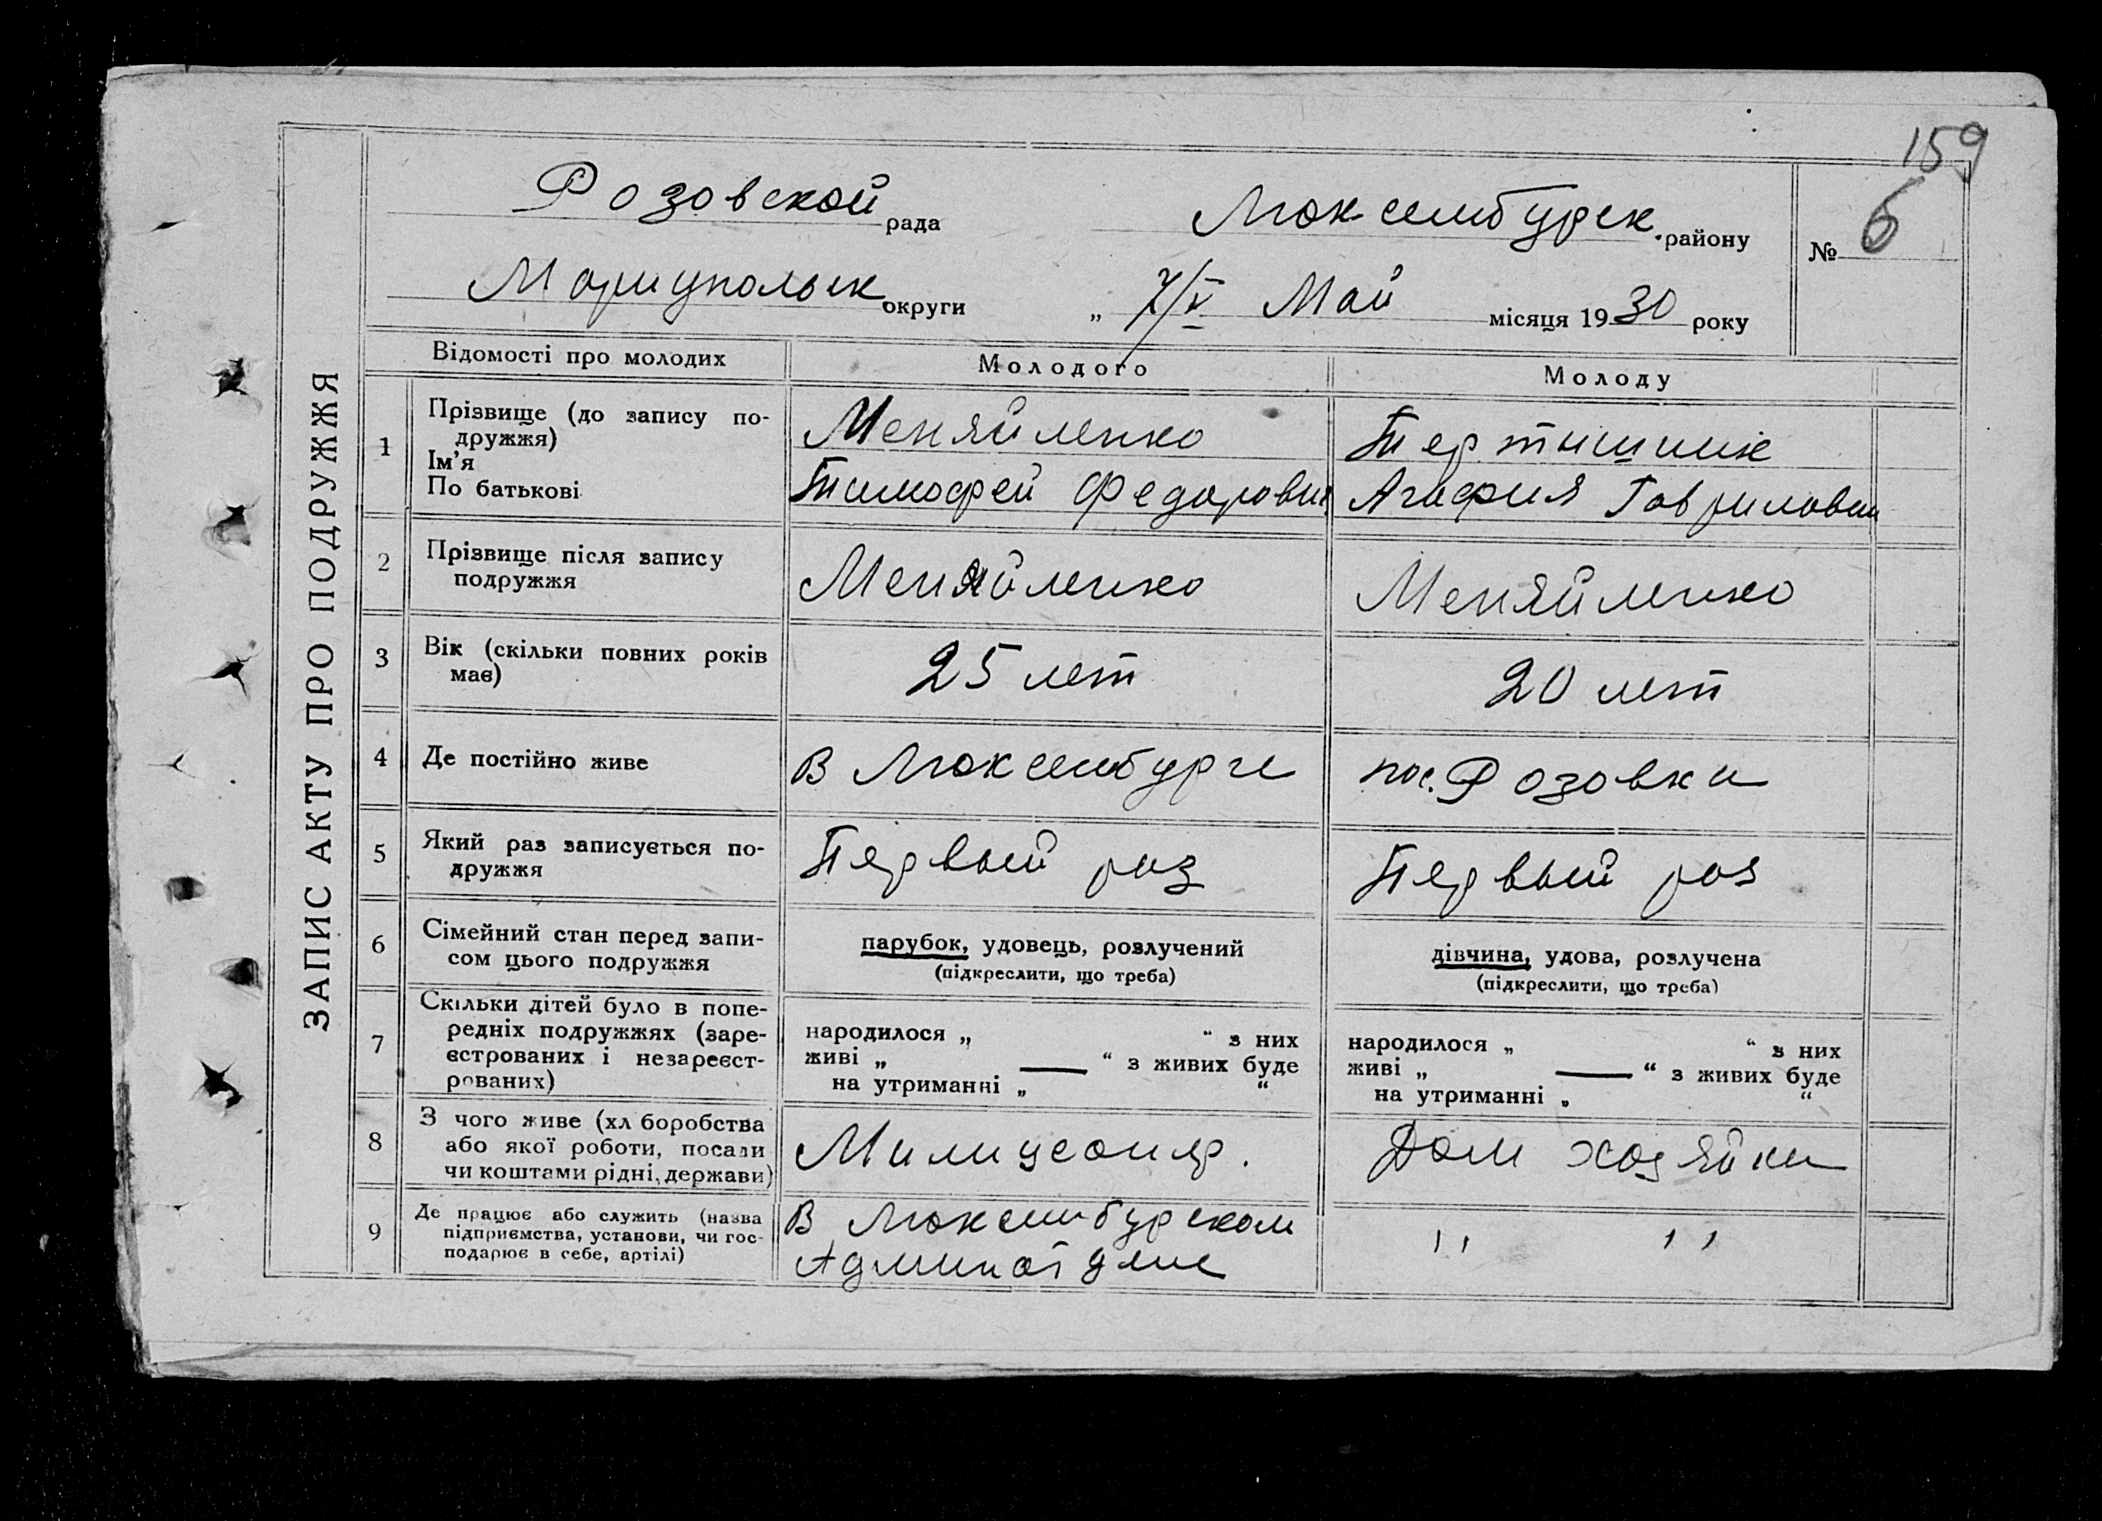 159
Розовской рада Люксембурск. району № 6
Мариупольск округи „ 7/V Май місяця 1930 року
ЗАПИС АКТУ ПРО ПОДРУЖЖЯ
Відомості про молодих Молодого Молоду
1 Прізвище (до запису по-
дружжя)
Ім'я
По батькові
Меняйленко
Тимофей Федорович
Тертишник
Агафия Гавриловн
2 Прізвище після запису
подружжя
Меняйленко Меняйленко
3 Вік (скільки повних років
має)
25 лет 20 лет
4 Де постійно живе В Люксембурге пос. Розовка
5 Який раз записується по-
дружжя
Первый раз Первый раз
6 Сімейний стан перед запи-
сом цього подружжя
парубок, удовець, розлучений
(підкреслити, що треба)
дівчина, удова, розлучена
(підкреслити, що треба)
7 Скільки дітей було в попе-
редніх подружжях (заре-
єстрованих і незареєст-
рованих)
народилося „ “ з них
живі „ — “ з живих буде
на утриманні „ “
народилося „ “ з них
живі „ — “ з живих буде
на утриманні „ “
8 З чого живе (хліборобства
або якої роботи, посади
чи коштами рідні, держави)
Милиционер. Дом хозяйки
9 Де працює або служить (назва
підприємства, установи, чи гос-
подарює в себе, артілі)
В Люксембурском
Админотделе
" "